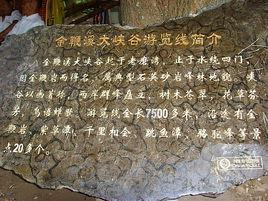 金鞭溪大峡谷游览线简介
金鞭溪大峡谷起于老磨湾，止于水绕四门，
因金鞭岩而得名，属典型石英砂岩峰林地貌，
谷以幽著称，两岸群峰屹立，树木苍翠，花草芬
芳，鸟语蝉鸣，游览线全长7500多米，沿线有金
鞭岩、紫草潭、千里相会、跳鱼潭、骆驼峰等景
点20多个。